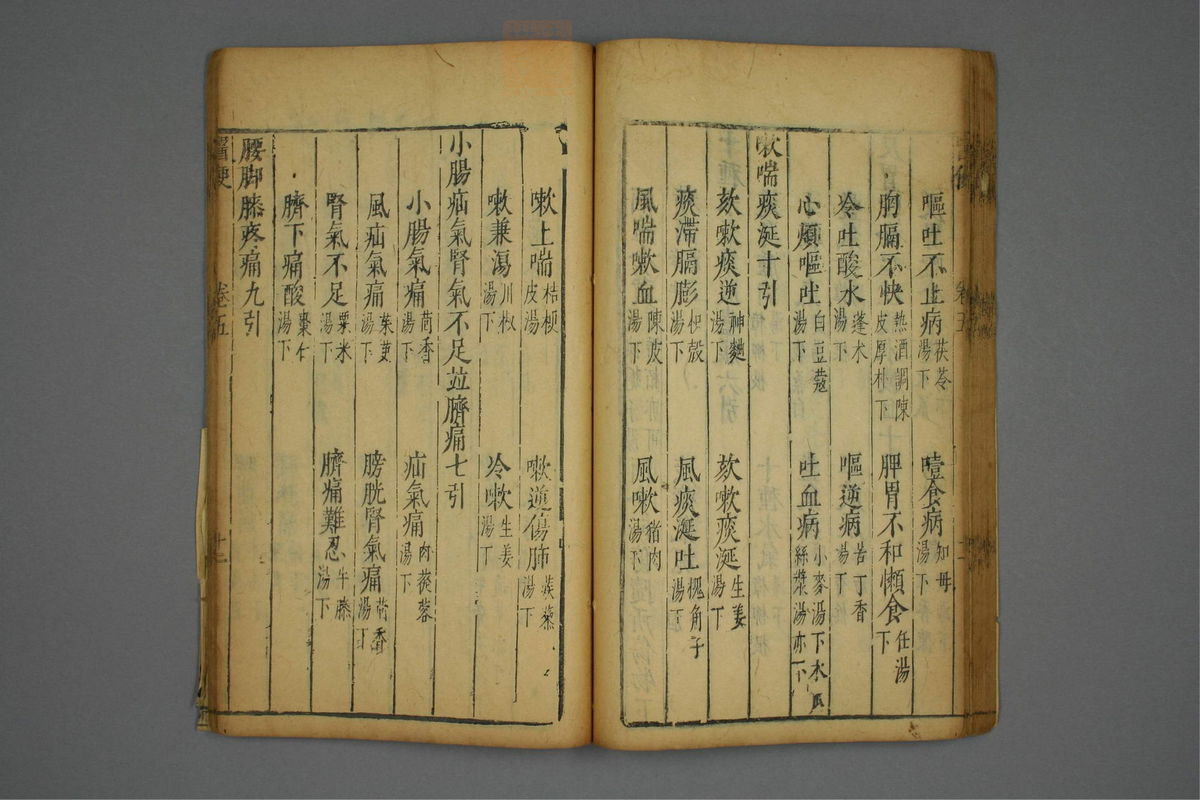 嘔吐不止病茯苓湯下 噎食病知母湯下
胸膈不快熱酒調陳皮厚朴下 脾胃不和懶食任湯下
冷吐酸水蓬朮湯下 嘔逆病苦丁香湯下
心煩嘔吐白豆蔻湯下 吐血病小麥湯下水絲漿湯亦下
嗽喘痰涎十引
欬嗽痰逆神麯湯下 欬嗽痰涎生姜湯下
痰滯膈膨枳殼湯下 風痰涎吐槐角子湯下
風喘嗽血陳皮湯下 風嗽猪肉湯下
嗽上喘桔梗皮湯 嗽逆傷肺蒺䔧湯下
嗽兼瀉川椒湯下 冷嗽生姜湯下
小腸疝氣腎氣不足並臍痛七引
小腸氣痛茴香湯下 疝氣痛肉蓯蓉湯下
風疝氣痛茱萸湯下 膀胱腎氣痛茴香湯下
腎氣不足粟米湯下 臍痛難忍牛膝湯下
臍下痛酸棗仁湯下
腰脚膝疼痛九引
卷五